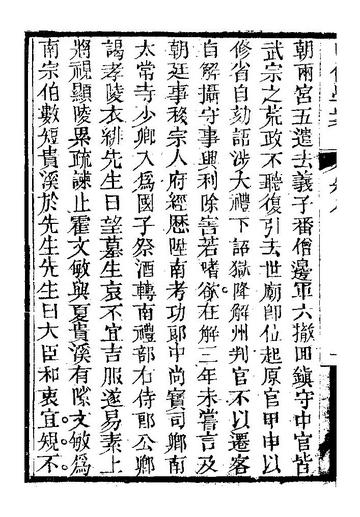 朝兩宮五遣去義子番僧邊軍六撤回鎮守中官皆
武宗之荒政不聽復引去世廟卽位起原官甲申以
修省自劾語涉大禮下詔獄降解州判官不以遷客
自解攝守事興利除害若嗜欲在解三年未嘗言及
朝廷事移宗人府經歷陞南考功郎中尚寶司卿南
太常寺少卿入爲國子祭酒轉南禮部右侍郎公卿
謁孝陵衣緋先生曰望墓生哀不宜吉服遂易素上
將視顯陵累疏諫止霍文敏與夏貴溪有隙文敏爲
南宗伯數短貴溪於先生先生曰大臣和衷宜規不